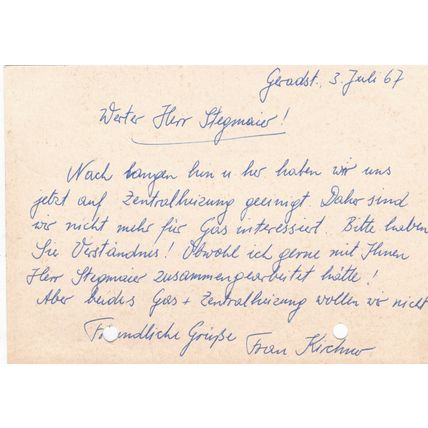 Geradst. 3. Juli 67
Werter Herr Stegmaier!
Nach langen hin u her haben wir uns
jetzt auf Zentralheizung geeinigt. Daher sind
wir nicht mehr für Gas interessiert. Bitte haben
Sie Verständnis! Obwohl ich gerne mit Ihnen
Herr Stegmaier zusammengearbeitet hätte!
Aber beides Gas + Zentralheizung wollen wir nicht
Freundliche Grüße
Frau Kirchner